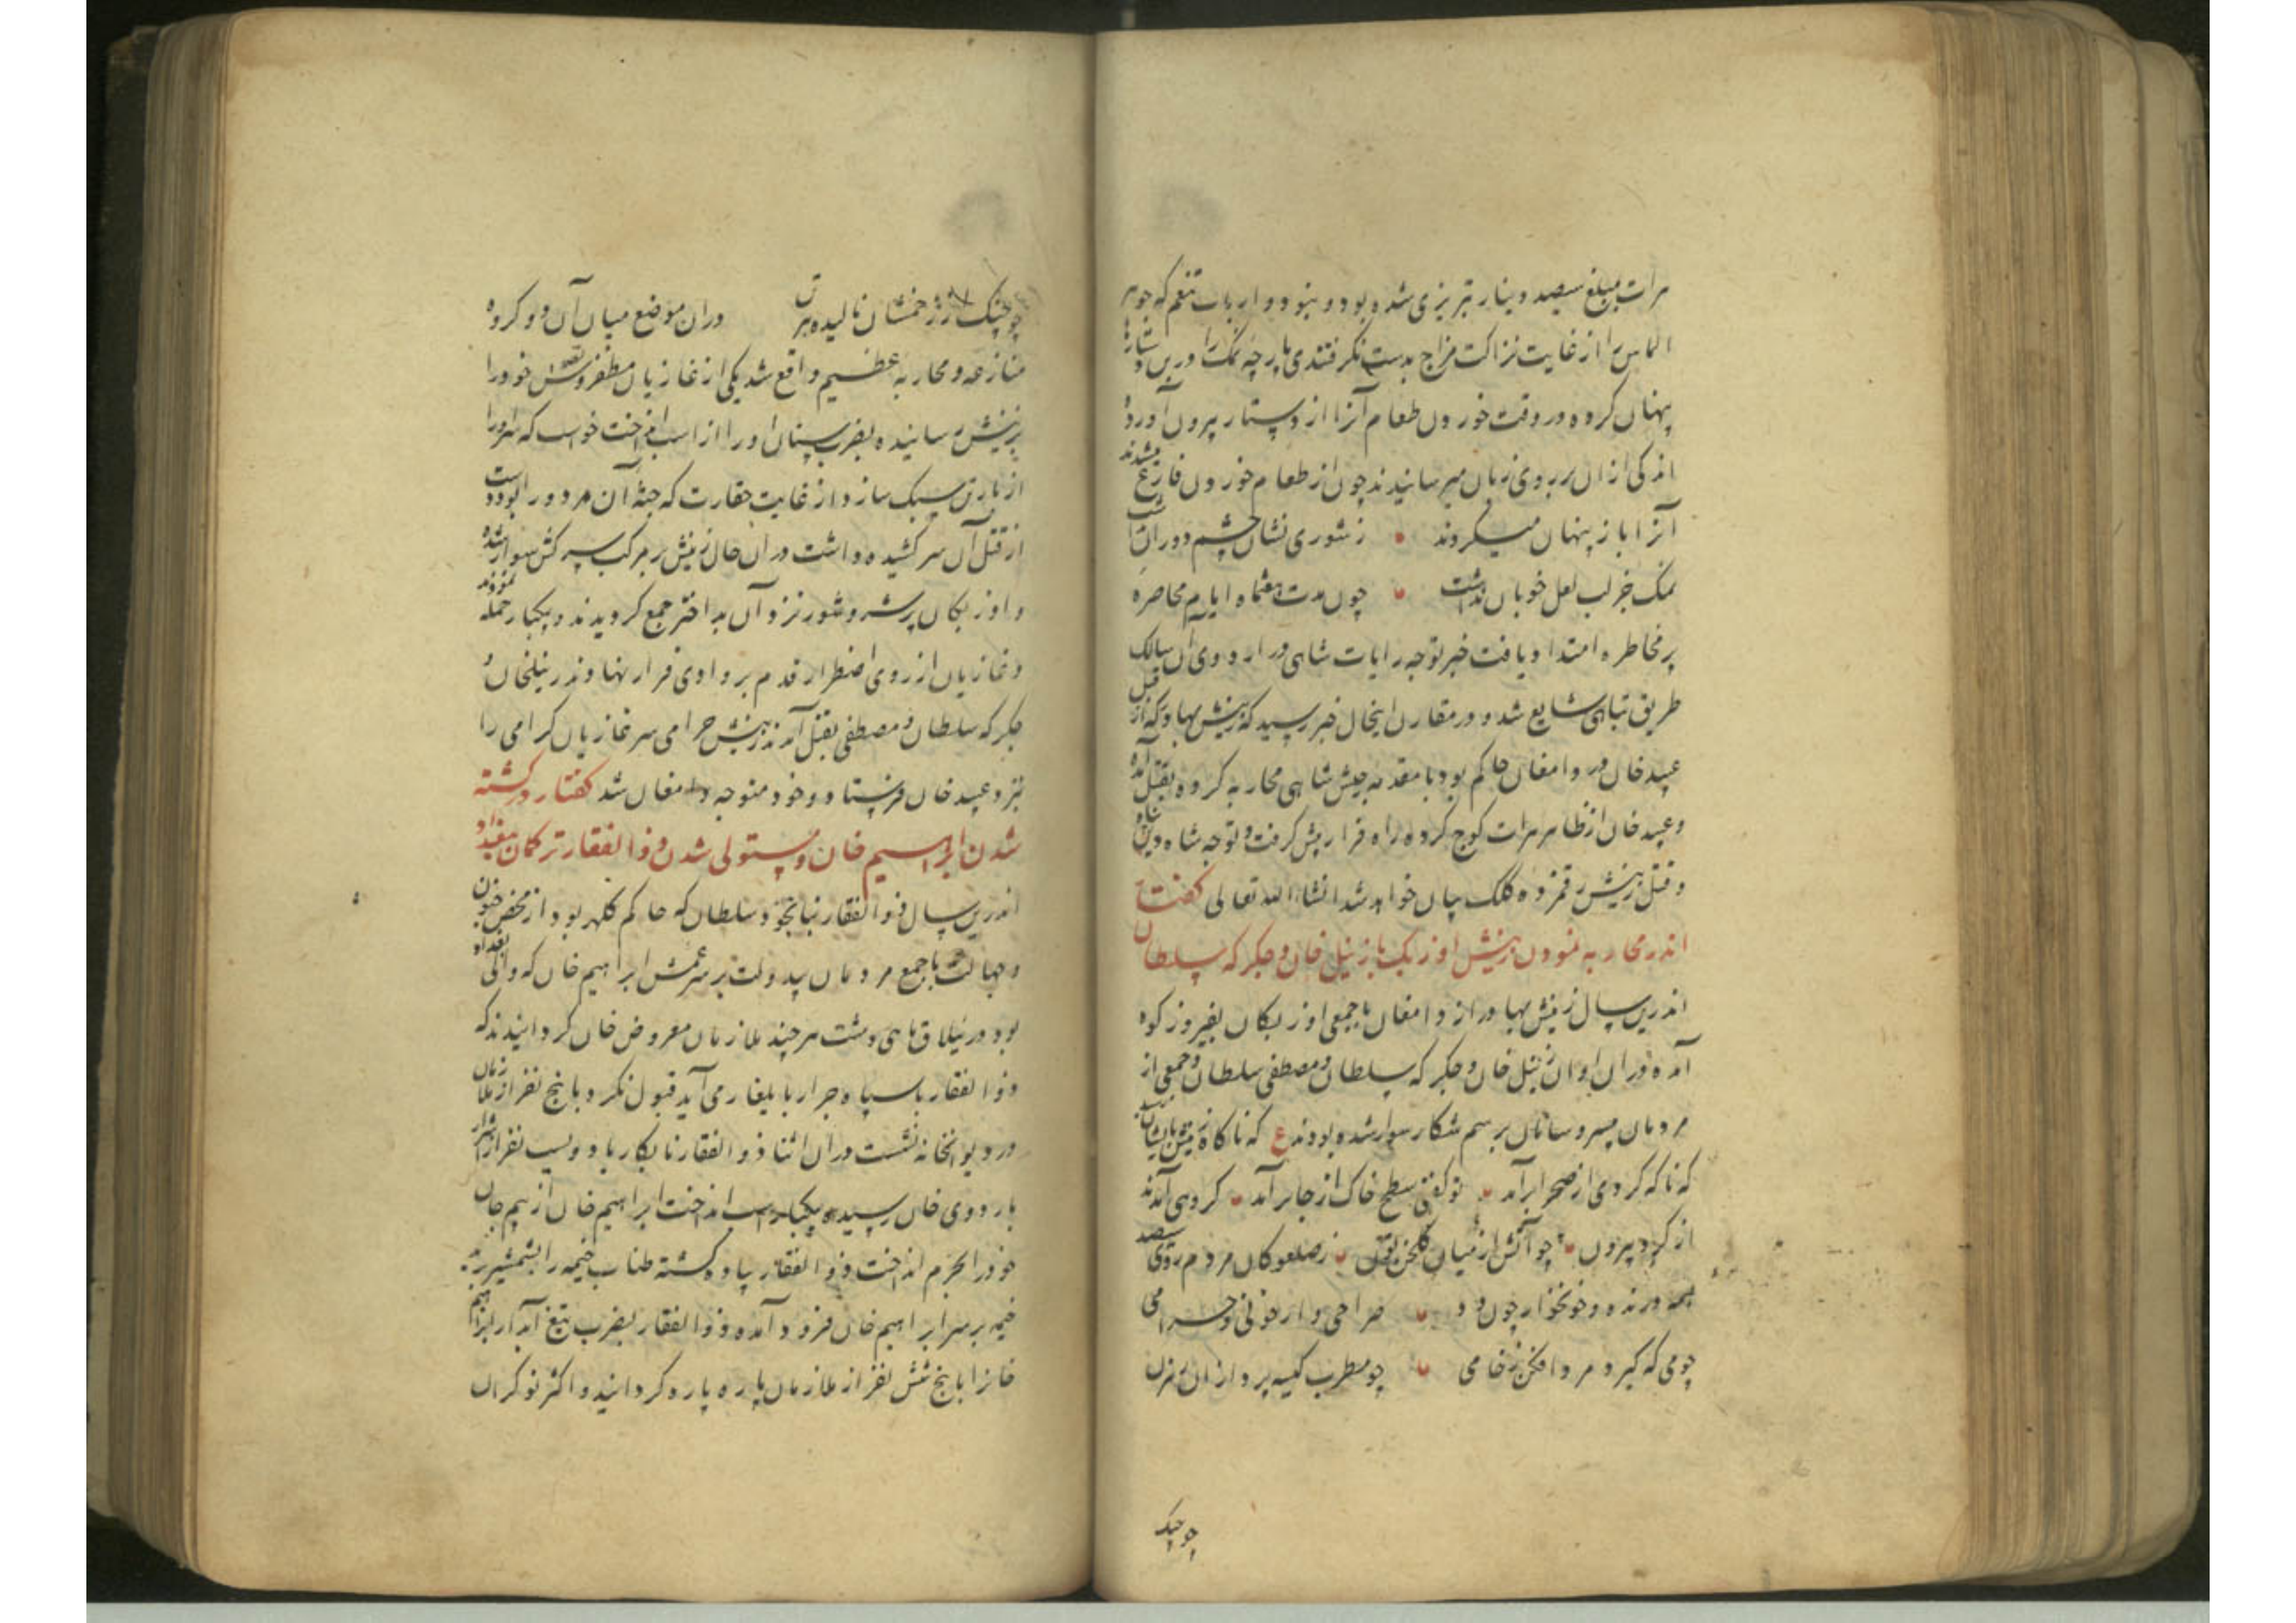 هرات بمبلغ سیصد دینار تبریزی شده بود و نبود و ارباب تنعم که جوهر
الماس را از غایت نزاکت مزاج بدست نگرفتندی پارچه نمک را در پس دستارها
پنهان کرده در وقت خوردن طعام آنرا از دستار بیرون آورده
اندکی از آن بر روی زبان میرسانیدند چون از طعام خوردن فارغ میشدند
آنرا باز پنهان میکردند ز شوری نشان چشم دوران نداشت
نمک جز لب لعل خوبان نداشت چون مدت هفتماه ایام محاصره
پر مخاطره امتداد یافت خبر توجه رایات شاهی در اردوی آن سالک
طریق تباهی شایع شد و در مقارن اینحال خبر رسید که زینش بهادر که از قبل
عبید خان در دامغان حاکم بود با مقدمه جیش شاهی محاربه کرده بقتل آمده
و عبید خان از ظاهر هرات کوچ کرده راه فرار پیش گرفت و توجه شاه دین پناه
و قتل زینش رقمزده کلک بیان خواهد شد انشاء الله تعالی گفتار
اندر محاربه نمودن زینش اوزبک با زینل خان و جکرکه سلطان
اندرین سال زینش بهادر از دامغان با جمعی اوزبکان بفیروزکوه
آمده در آن اوان زینل خان و جکرکه سلطان و مصطفی سلطان و جمعی از
مردمان بیسر و سامان برسم شکار سوار شده بودند ع که ناگاه زینش بایشان رسید
که ناگه گردی از صحرا برآمد تو گفتی سطح خاک از جا برآمد گروهی آمدند
از گرد بیرون چو آتش از میان گلخن تون ز صعلوکان مردم روی سیصد
همه درنده و خونخوار چون دد حراحی وار خونی و حرامی
چو می که گیر و مردافکن ز خامی چو مطرب کیسه پرداز ان بهر تن
چو چنک
چو چنک از زخمشان نالیده هر تن در آن موضع میان آن دو گروه
منازعه و محاربه عظیم واقع شد یکی از غازیان مظفر و نقش خود را
بزینش رسانیده بضرب سنان او را از اسب انداخت خواست که سر او را
از بار تن سبک سازد از غایت حقارت که جثه آن مردود را بود دست
از قتل آن سر کشیده داشت در آن حال زینش بر مرکب سرکش سوار شده
و اوزبکان پر شر و شور نزد آن بد اختر جمع گردیدند و بیکبار حمله نمودند
و غازیان از روی اضطرار قدم بر وادی فرار نهادند زینلخان و
جکرکه سلطان و مصطفی بقتل آمدند زینش حرامی سر غازیان گرامی را
نزد عبید خان فرستاد و خود متوجه دامغان شد گفتار در کشته
شدن ابراهیم خان و مستولی شدن ذوالفقار ترکمان ببغداد
اندرین سال ذوالفقار نبا نخود سلطان که حاکم کلهر بود از محض جنون
و جهالت با جمع مردمان بیدولت بر سر عمش ابراهیم خان که والی بغداد
بود در ییلاق ماهی دشت هر چند ملازمان معروض خان گردانیدند که
ذوالفقار با سپاه جرار بایلغار می آید قبول نکرد با پنج نفر از ملازمان
در دیوانخانه نشست در آن اثنا ذوالفقار نابکار با دویست نفر از اشرار
باردوی خان رسیده بیکبار اسب انداخت ابراهیم خان از بیم جان
خود را بحرم انداخت ذوالفقار پیاده گشته طناب خیمه را بشمشیر برید
خیمه بر سر ابراهیم خان فرود آمده ذوالفقار بضرب تیغ آبدار ابراهیم
خان را با پنج شش نفر از ملازمان پاره پاره گردانید و اکثر نوکران